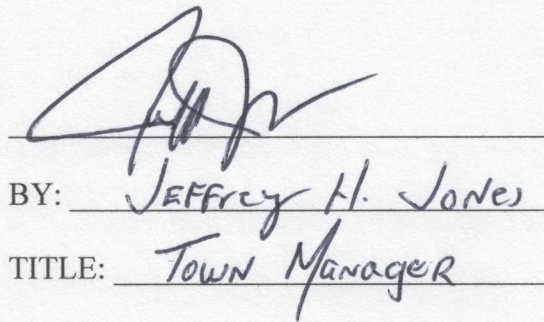 BY: Jeffrey H. Jones
TITLE: Town Manager